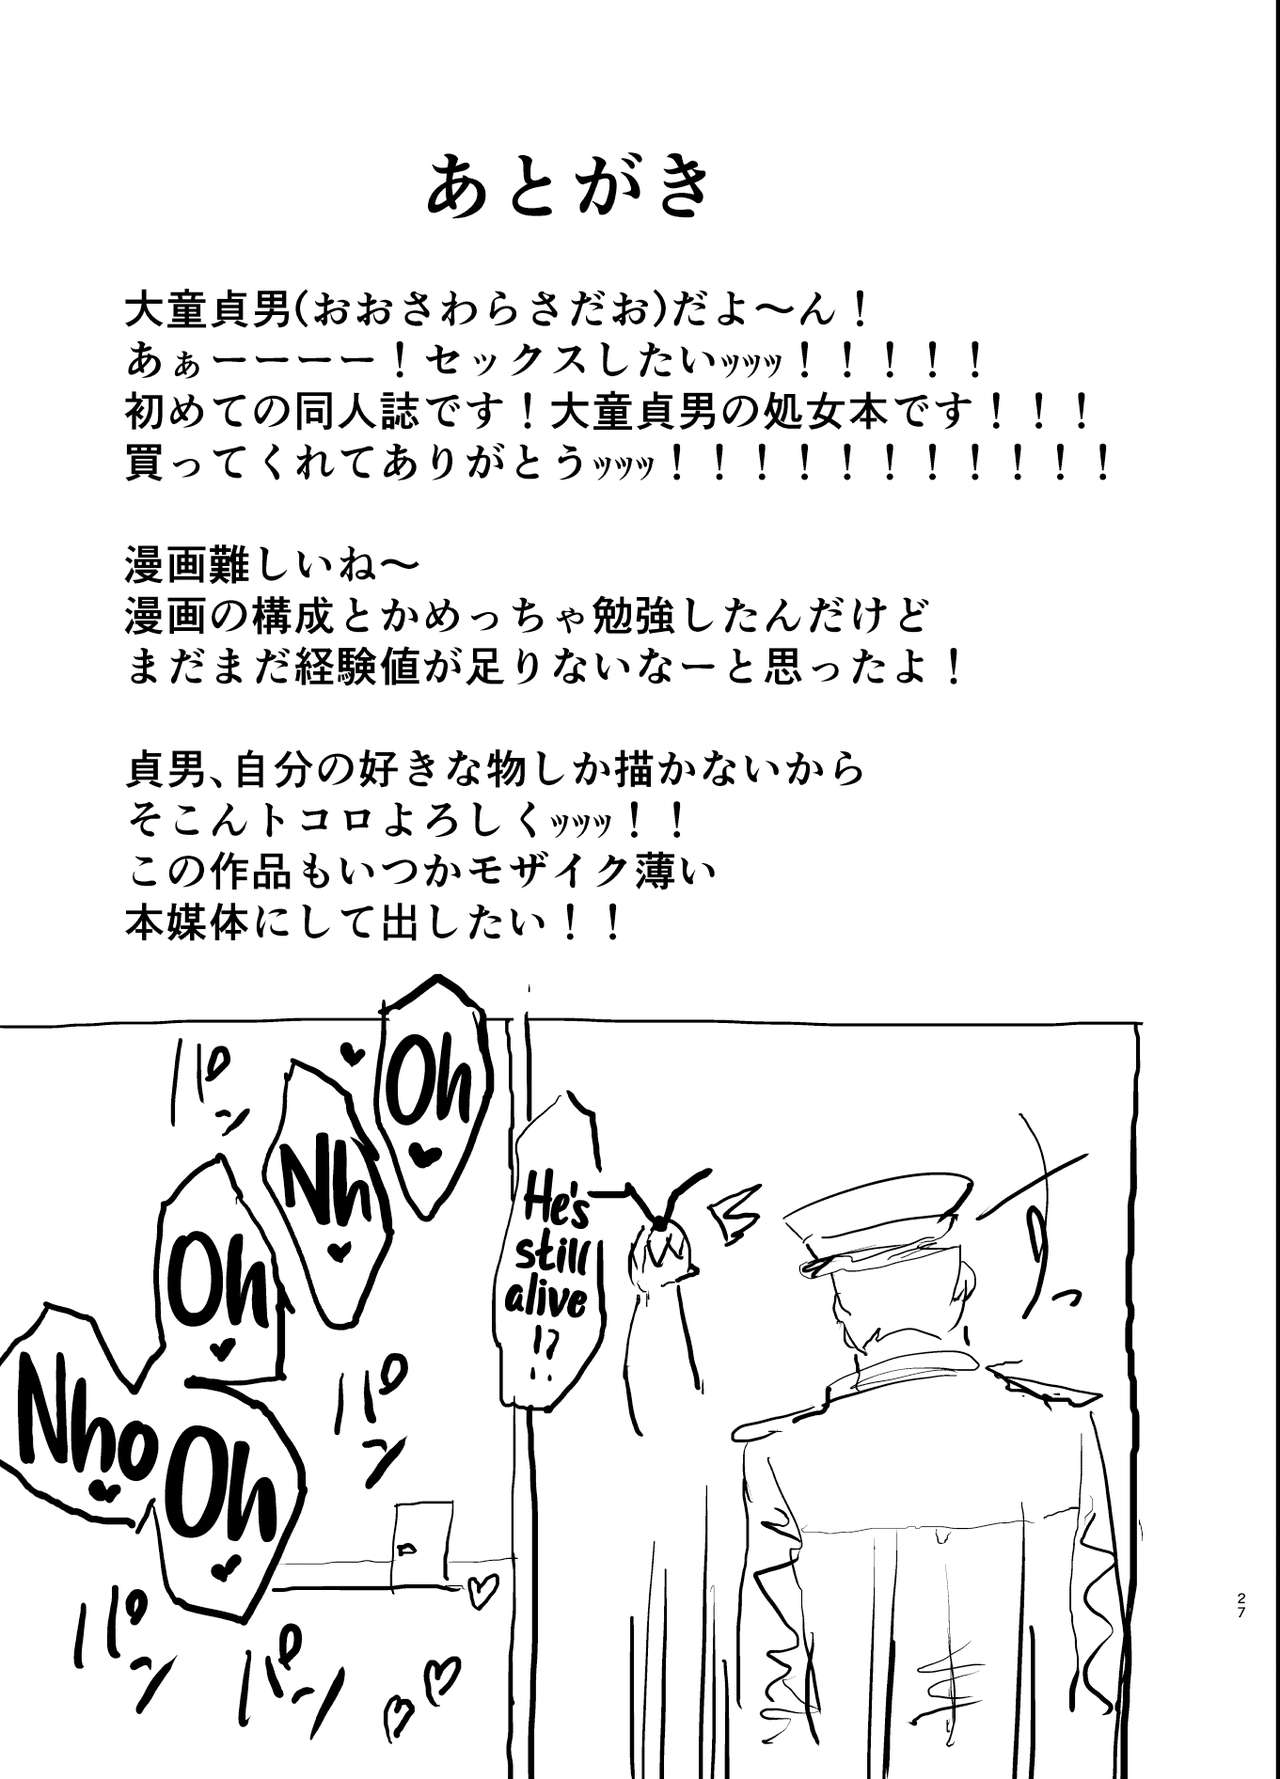 あとがき
大童貞男(おおさわらさだお)だよ〜ん！
あぁーーーー！セックスしたいｯｯｯｯ！！！！！
初めての同人誌です！大童貞男の処女本です！！！
買ってくれてありがとうｯｯｯｯ！！！！！！！！！！！
漫画難しいね〜
漫画の構成とかめっちゃ勉強したんだけど
まだまだ経験値が足りないなーと思ったよ！
貞男、自分の好きな物しか描かないから
そこんトコロよろしくｯｯｯｯ！！
この作品もいつかモザイク薄い
本媒体にして出したい！！
He's
still
alive
!?
Oh
♥
Nh
♥
Oh
♥
Nho
♥
Oh
♥
パン
パン
パン
パン
27